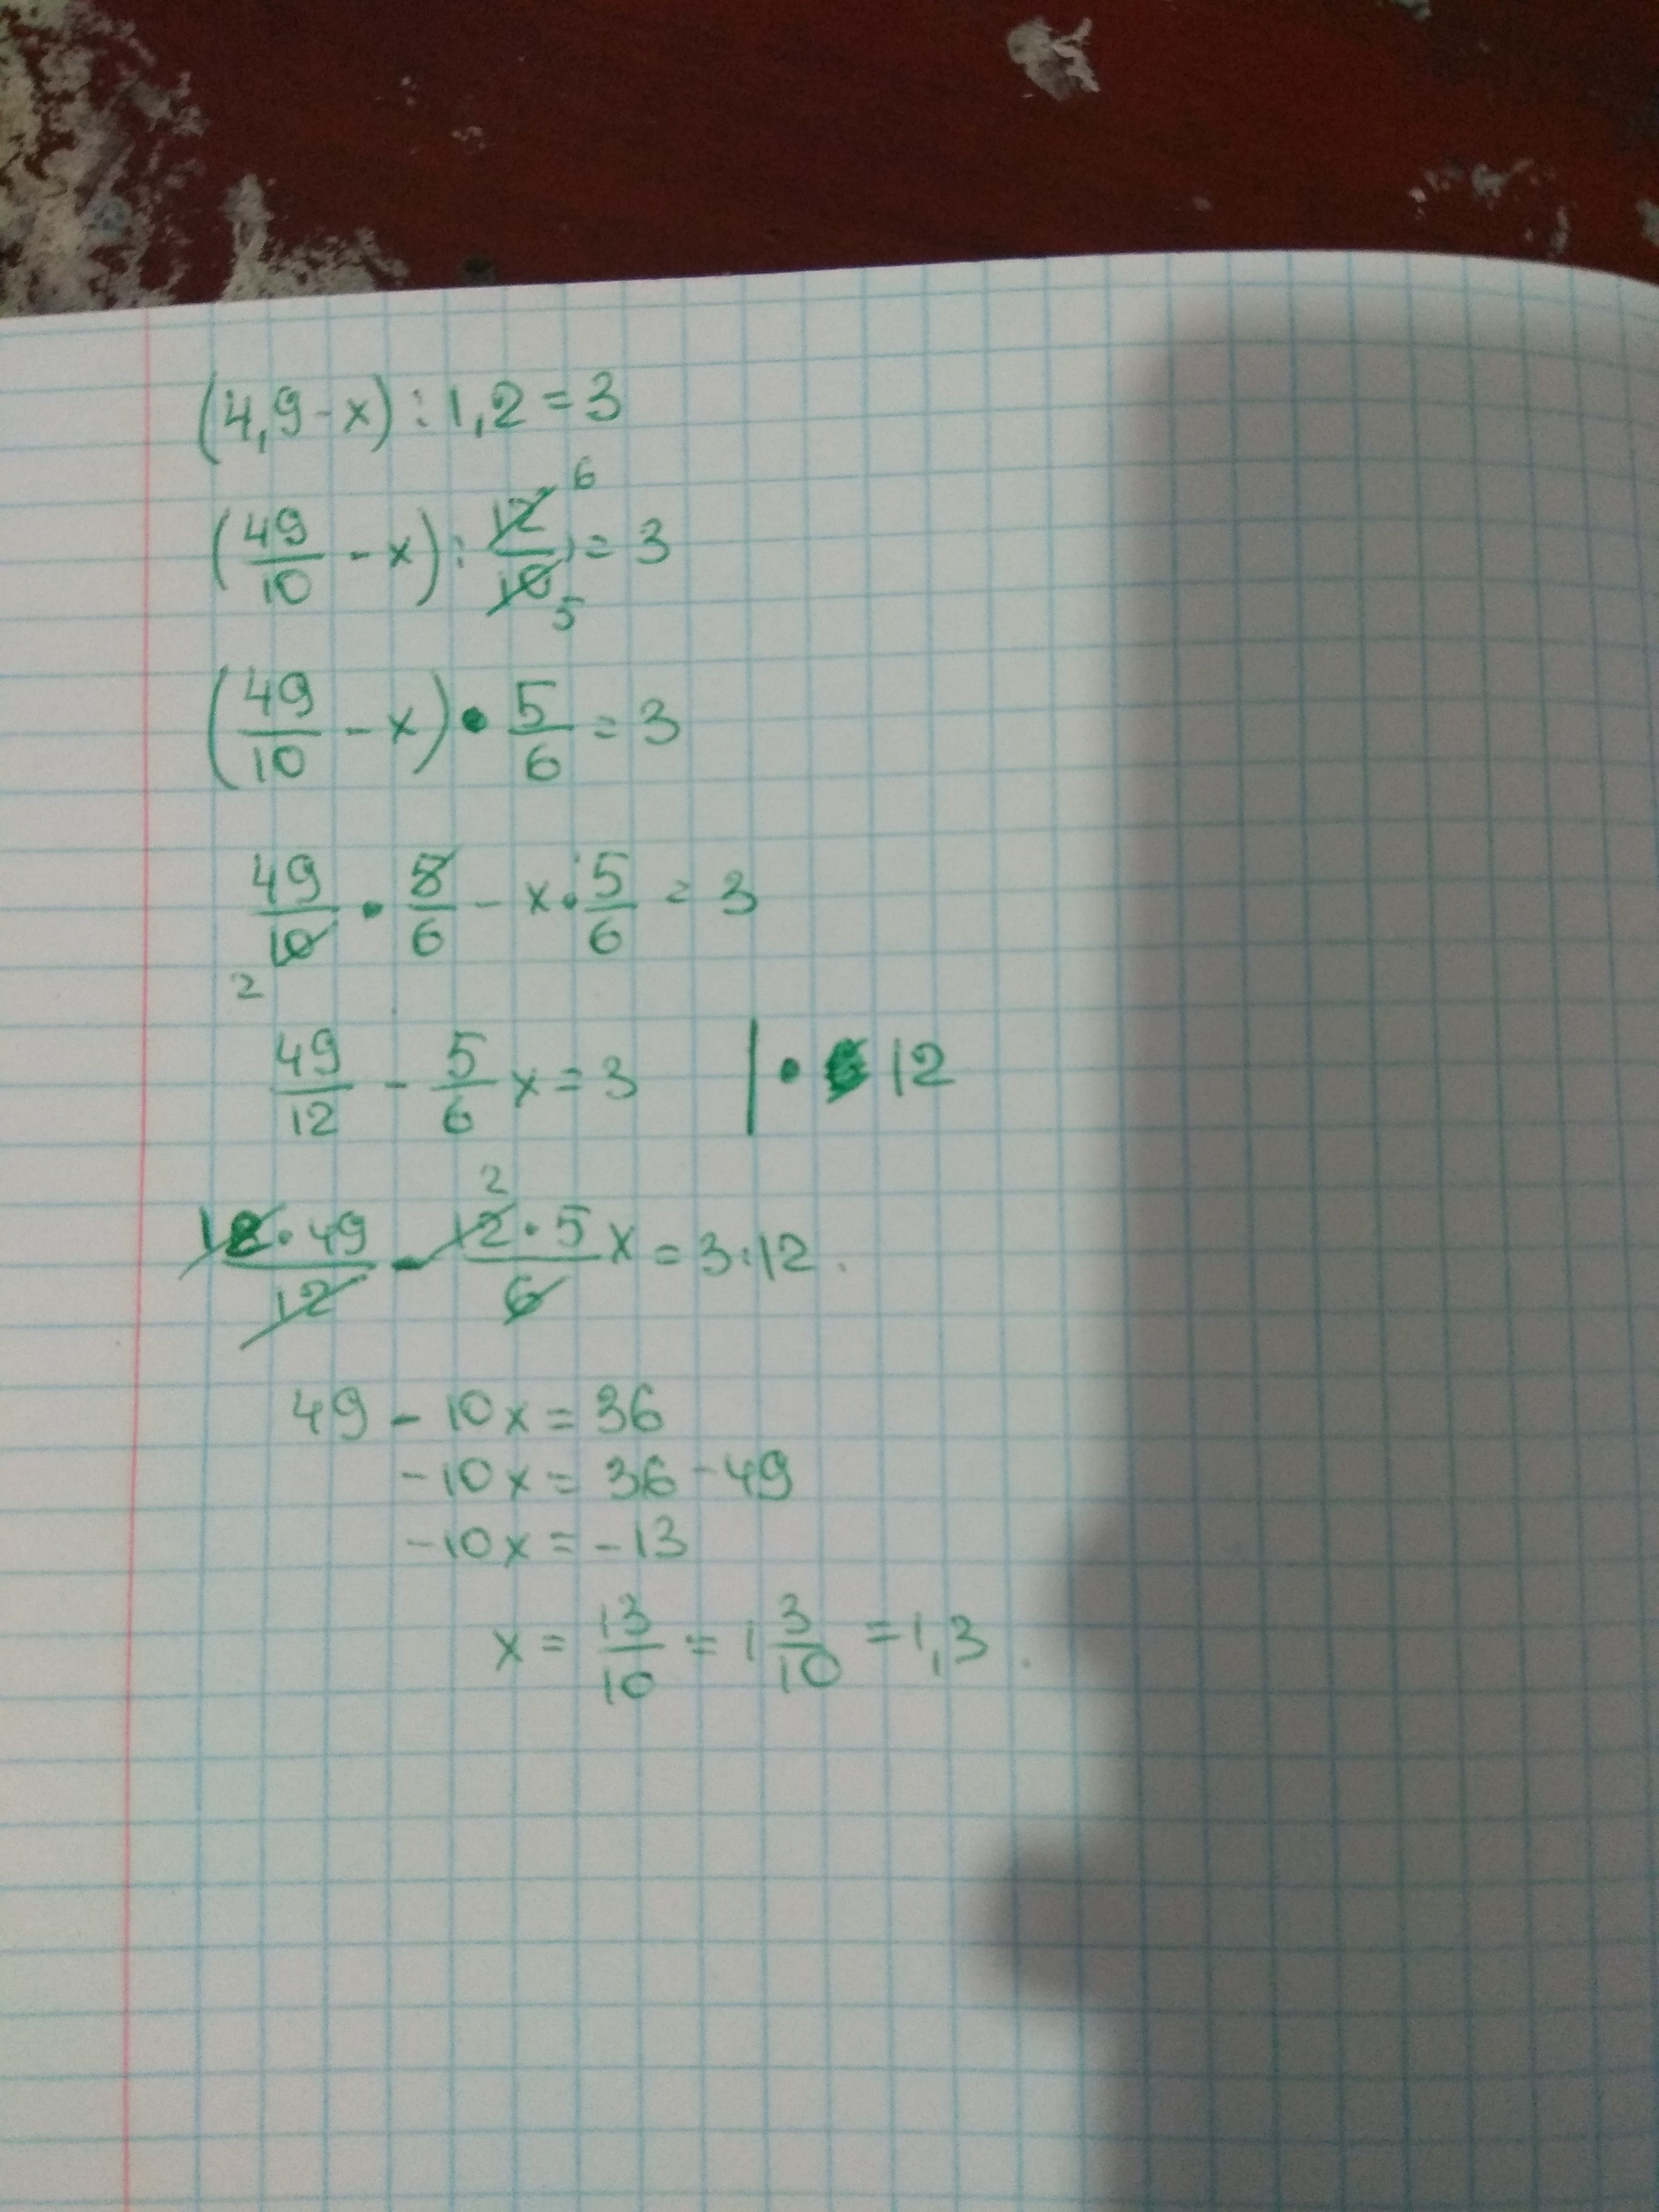 (4,9 - x) : 1,2 = 3
(49/10 - x) : 12/10 = 3 6 5
(49/10 - x) • 5/6 = 3
49/10 • 5/6 - x • 5/6 = 3 2
49/12 - 5/6 x = 3 | • 12
12 • 49/12 - 12 • 5/6 x = 3 · 12 . 2
49 - 10x = 36
-10x = 36 - 49
-10x = -13
x = 13/10 = 1 3/10 = 1,3 .